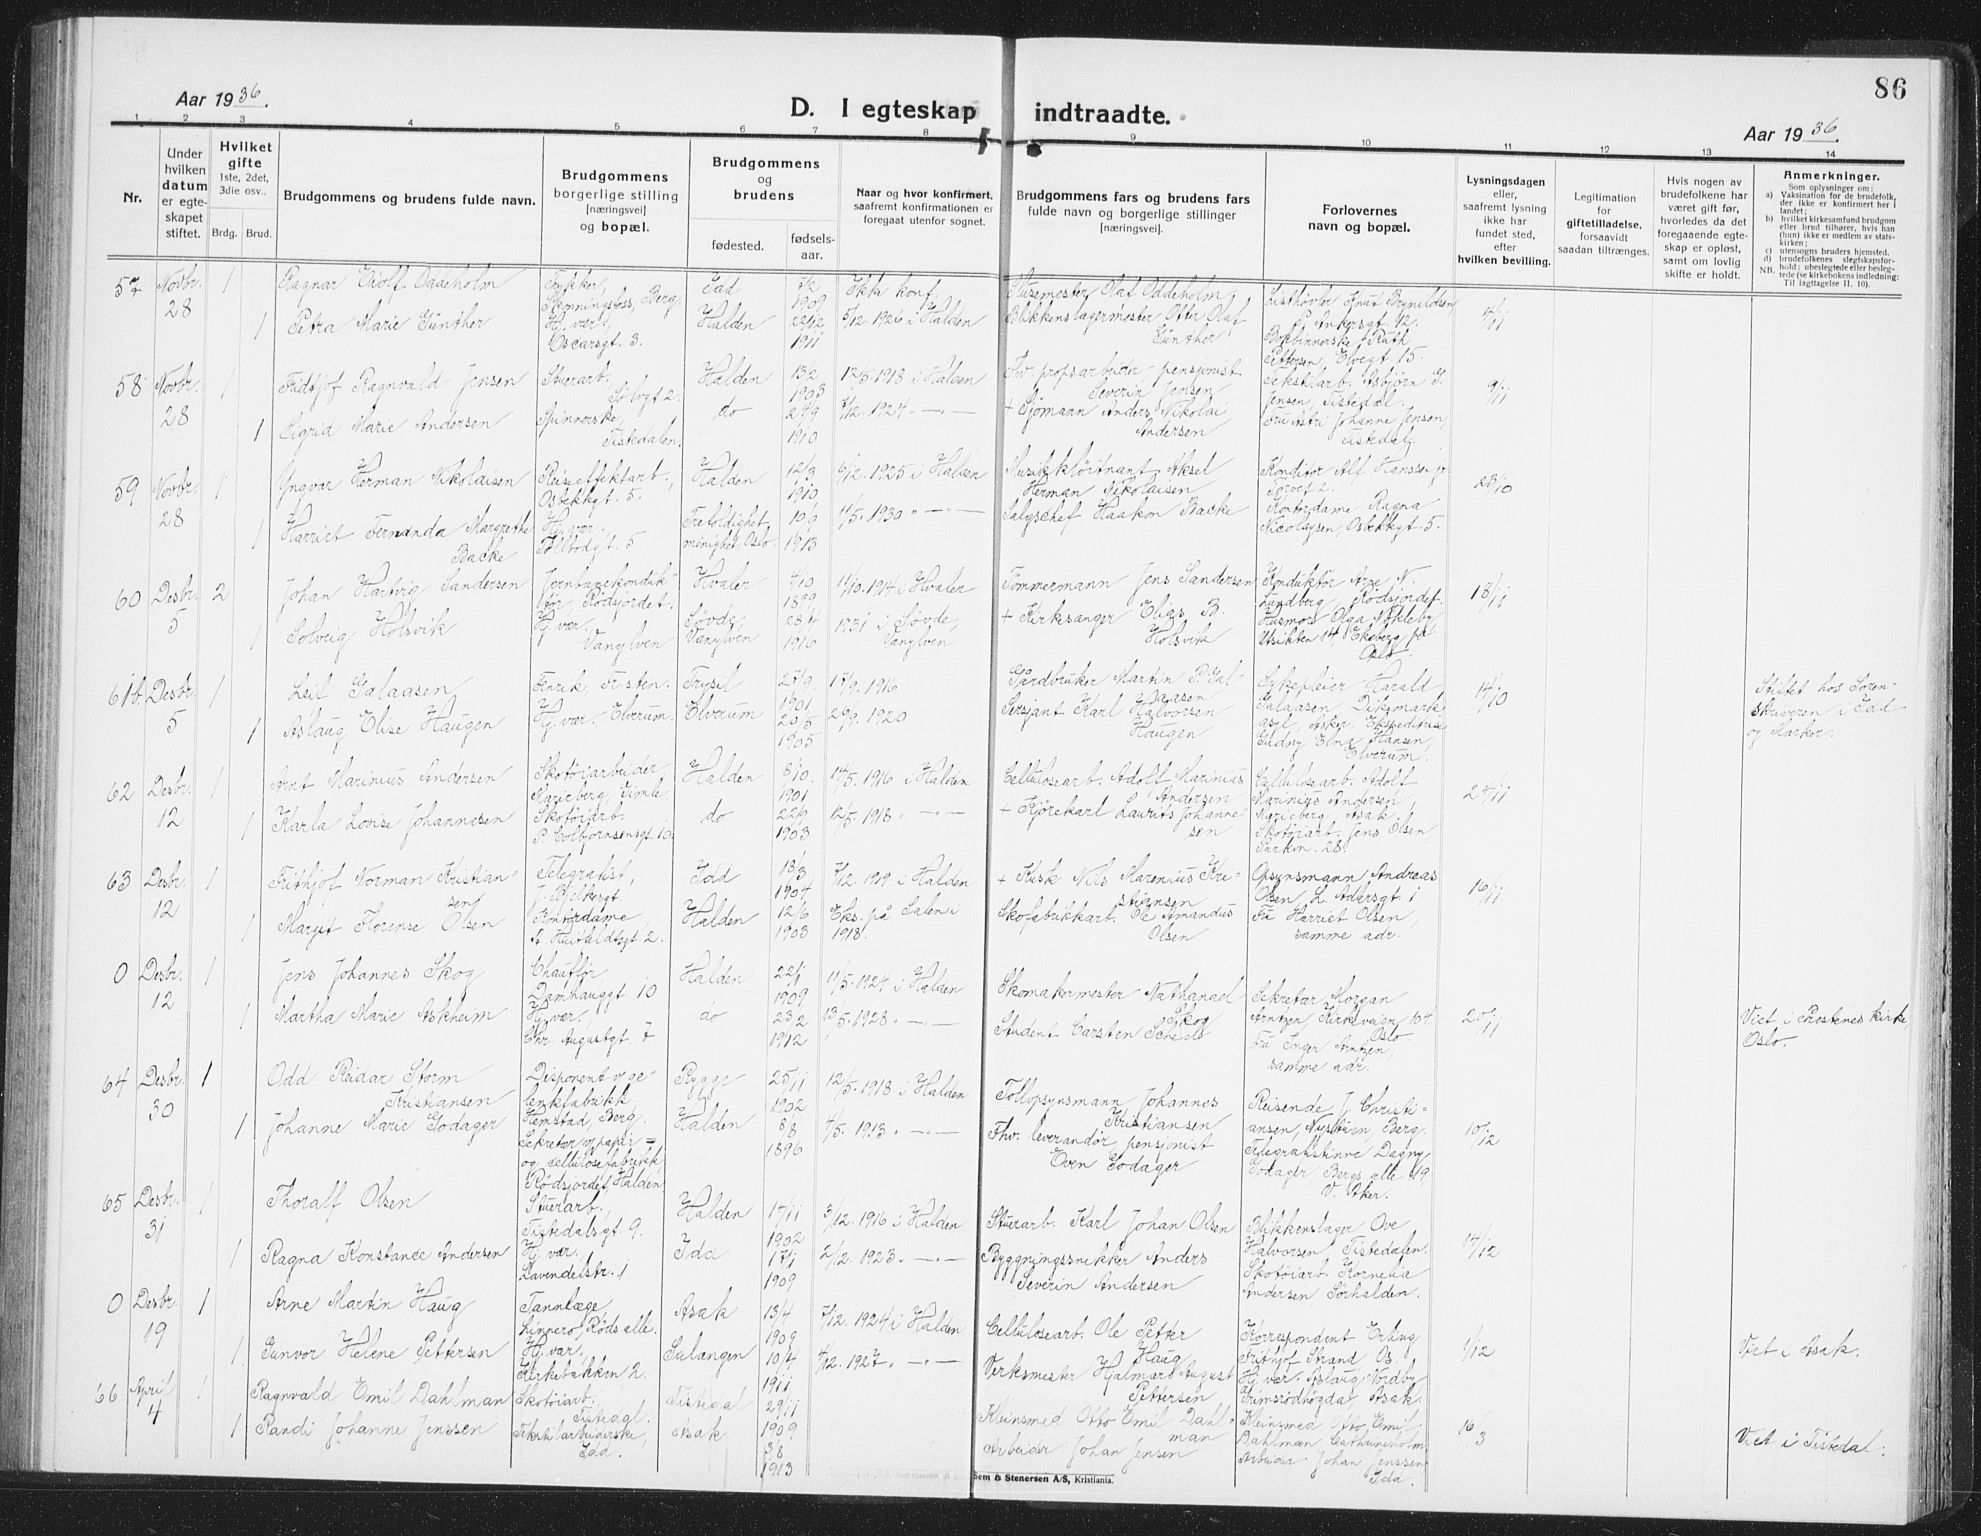 86
Aar 1936.
D. I egteskap indtraadte.
Aar 1936.
1 2 3 4 5 6 7 8 9 10 11 12 13 14
Nr.
Under hvilken datum er egteskapet stiftet.
Hvilket gifte 1ste, 2det, 3die osv..
Brdg. Brud.
Brudgommens og brudens fulde navn.
Brudgommens borgerlige stilling [næringsvei] og bopæl.
Brudgommens og brudens
fødested. fødselsaar.
Naar og hvor konfirmert, saafremt konfirmationen er foregaat utenfor sognet.
Brudgommens fars og brudens fars fulde navn og borgerlige stillinger [næringsvei].
Forlovernes navn og bopæl.
Lysningsdagen eller, saafremt lysning ikke har fundet sted, efter hvilken bevilling.
Legitimation for giftetilladelse, forsaavidt saadan tiltrænges.
Hvis nogen av brudefolkene har været gift før, hvorledes da det foregaaende egteskap er opløst, samt om lovlig skifte er holdt.
Anmerkninger.
Som oplysninger om:
a) Vaksination for de brudefolk, der ikke er konfirmert her i landet;
b) hvilket kirkesamfund brudgom eller brud tilhører, hvis han (hun) ikke er medlem av statskirken;
c) utensogns bruders hjemsted.
d) brudefolkenes slegtskapsforhold: ubeslegtede eller beslegtede (se kirkebokens indledning:
NB. Til iagttagelse II. 10).
57 Novbr. 28 1 Ragnar Eiolf Oddeholm Trykker, Skonningsfoss, Berg Idd 7/2 1909 Ikke konf. Husemester Olaf Oddeholm Listhøvler Knut Brynildsen, P. Ankersgt. 12. 4/11
1 Petra Marie Günther Hj.vær. Oscarsgt. 3. Halden 22/12 1911 5/12.1926 i Halden Blikkenslagermester Otter Olaf Günther Bobbinnerske Ruth Pettersen, Elvegt. 15.
58 Novbr. 28 1 Fridtjof Ragnvald Jensen Stuerarb. Sølvgt. 2. Halden 13/2 1903 12/5.1918 i Halden Fhv. propsarbeider, pensjonist Severin Jensen Tekstilarb. Asbjørn G. Jensen, Tistedal. 9/11
1 Sigrid Marie Andersen Spinnerske, Tistedalen. do 24/9 1910 7/12.1924 — " — + Sjømann Anders Nikolai Andersen Fru Astri Johanne Jensen, Tistedal.
59 Novbr. 28 1 Yngvar Herman Nikolaisen Reiseeffektarb., Osbekkgt. 5. Halden 12/3 1910 6/12.1925 i Halden Musikkløitnant Aksel Herman Nikolaisen Konditor Alf Hanssen jr. Torvet 2. 23/10
1 Harriet Fernanda Margrethe Backe Hj.vær. Tollbodgt. 5 Trefoldighet menighet Oslo. 10/9 1913 11/5.1930 " — " — Salgschef Haakon Backe Kontordame Ragna Nicolaysen, Osbekkgt. 5.
60 Desbr. 5 2 Johan Hartvig Sandersen Jernbanekonduktør, Rødsjordet. Hvaler 7/10 1899 11/10.1914 i Hvaler Tømmermann Jens Sandersen Konduktør Arne N. Lundberg, Rødsjordet. 18/11
1 Solveig Holsvik Hj.vær. Vanylven Søvde, Vanylven 28/4 1916 1931 i Søvde, Vanylven + Kirksanger Elias B. Holsvik Husmor Olga Nøkleby Utsikten 14, Ekeberg pr. Oslo.
61b. Desbr. 5 1 Leif Galaasen Fenrik Fristen. Trysil 27/9 1901 17/9.1916 Gårdbruker Martin P. Galaasen Sykepleier Harald Galaasen, Dikemark asyl, Asker, 14/10 Stiftet hos Sorenskriveren i Idd og Marker.
1 Aslaug Elise Haugen Hj.vær. Elverum. Elverum 20/5 1905 26/9.1920 Sersjant Karl Halvorsen Haugen Gudny Elna Hansen, Elverum.
62 Desbr. 12 1 Arnt Marinius Andersen Skotøiarbeider Marieberg, Halden 8/10. 1901 14/5.1916 i Halden Cellulosearb. Adolf Marinius Andersen Cellulosearb. Adolf Marinius Andersen, Marieberg, Asak. 24/11
1 Karla Lovise Johannesen Skotøiarb. P. Colbjørnsensgt. 10. do 22/6 1903 12/5.1918 " — " — + Kjørekarl Laurits Johannesen Skotøiarb. Jens Olsen, Parken 28.
63 Desbr. 12 1 Frithjof Norman Kristiansen Telegrafist, J. Bjelkesgt. Idd 18/3 1904 7/12.1919 i Halden + Kusk Nils Marenius Kristiansen Opsynsmann Andreas Olsen, L. Adlersgt. 1 16/11
1 Margit Florense Olsen Kontordame, A. Huitfeldtsgt. 2. Halden 12/6 1903 Eks. på Salen i 1918. Skofabrikkarb. Ole Amandus Olsen Fru Harriet Olsen, samme adr.
0 Desbr. 12 1 Jens Johannes Skog Chauffør Damhauggt. 10 Halden 22/1 1909 11/5.1924 i Halden Skomakermester Nathanael Skog Sekretær Morgan Arntzen, Kirkeveien 104, Oslo. 20/11 Viet i Prestenes kirke, Oslo.
1 Martha Marie Askheim Hj.vær. Chr. Augustgt. 7. do 23/2 1912 13/5.1928. — " — Student Carsten Fru Inger Arntzen, samme adr.
64 Desbr. 30 1 Odd Reidar Storm Kristiansen Disponent v/ gelenkfabrikk Hemstad, Berg. Rygge 25/11 1902 12/5.1918 i Halden Tollopsynsmann Johannes Kristiansen Reisende J. Christiansen, Nystuen, Berg. 10/12
1 Johanne Marie Godager Sekretær v/ papir- og cellulosefabrikk, Rødsjordet, Halden Halden 8/8 1896 4/5.1913. — " — Fhv. leverandør, pensjonist Even Godager Telegrafistinne Dagny Godager, Bergs alle 19 V. Aker.
65 Desbr. 31 1 Thoralf Olsen Stuerarb., Tistedalsgt. 9. Halden 14/11 1902 3/12.1916 i Halden Stuerarb. Karl Johan Olsen Blikkenslager Ove Halvorsen, Tistedalen. 14/12
1 Ragna Konstance Andersen Hj.vær. Lavendelstr. 1 Idd 17/1 1909 2/12.1923. — " — Byggningssnekker Anders Severin Andersen Skotøiarb. Kornelia Andersen, Sørhalden.
0 Desbr. 19 1 Arne Martin Haug Tannlæge, Røds alle. Asak 13/4 1909 7/12.1924 i Halden Cellulosearb. Ole Petter Haug Korrespondent Erling Frithjof Strand, Os. 1/12 Viet i Asak.
1 Gunvor Helene Pettersen Hj.vær. Kirkebakken 2. Salangen 10/4 1911 4/12.1927. — " — Verksmester Hjalmar August Pettersen Hj.vær. Aslaug Nordby Grimsrødhøgda, Asak.
66 April 4 1 Ragnvald Emil Dahlman Skotøiarb. Tistedal. Tistedal 29/11 1909 Kleinsmed Otto Emil Dahlman Kleinsmed Otto Emil Dahlman, Cathrineholm. 16/3 Viet i Tistedal.
1 Randi Johanne Jenssen Tekstilarbeiderske, Idd. Asak 3/8 1913 Arbeider Johan Jensen Arbeider Johan Jenssen Idd.
Sem & Stenersen A/S, Kristiania.